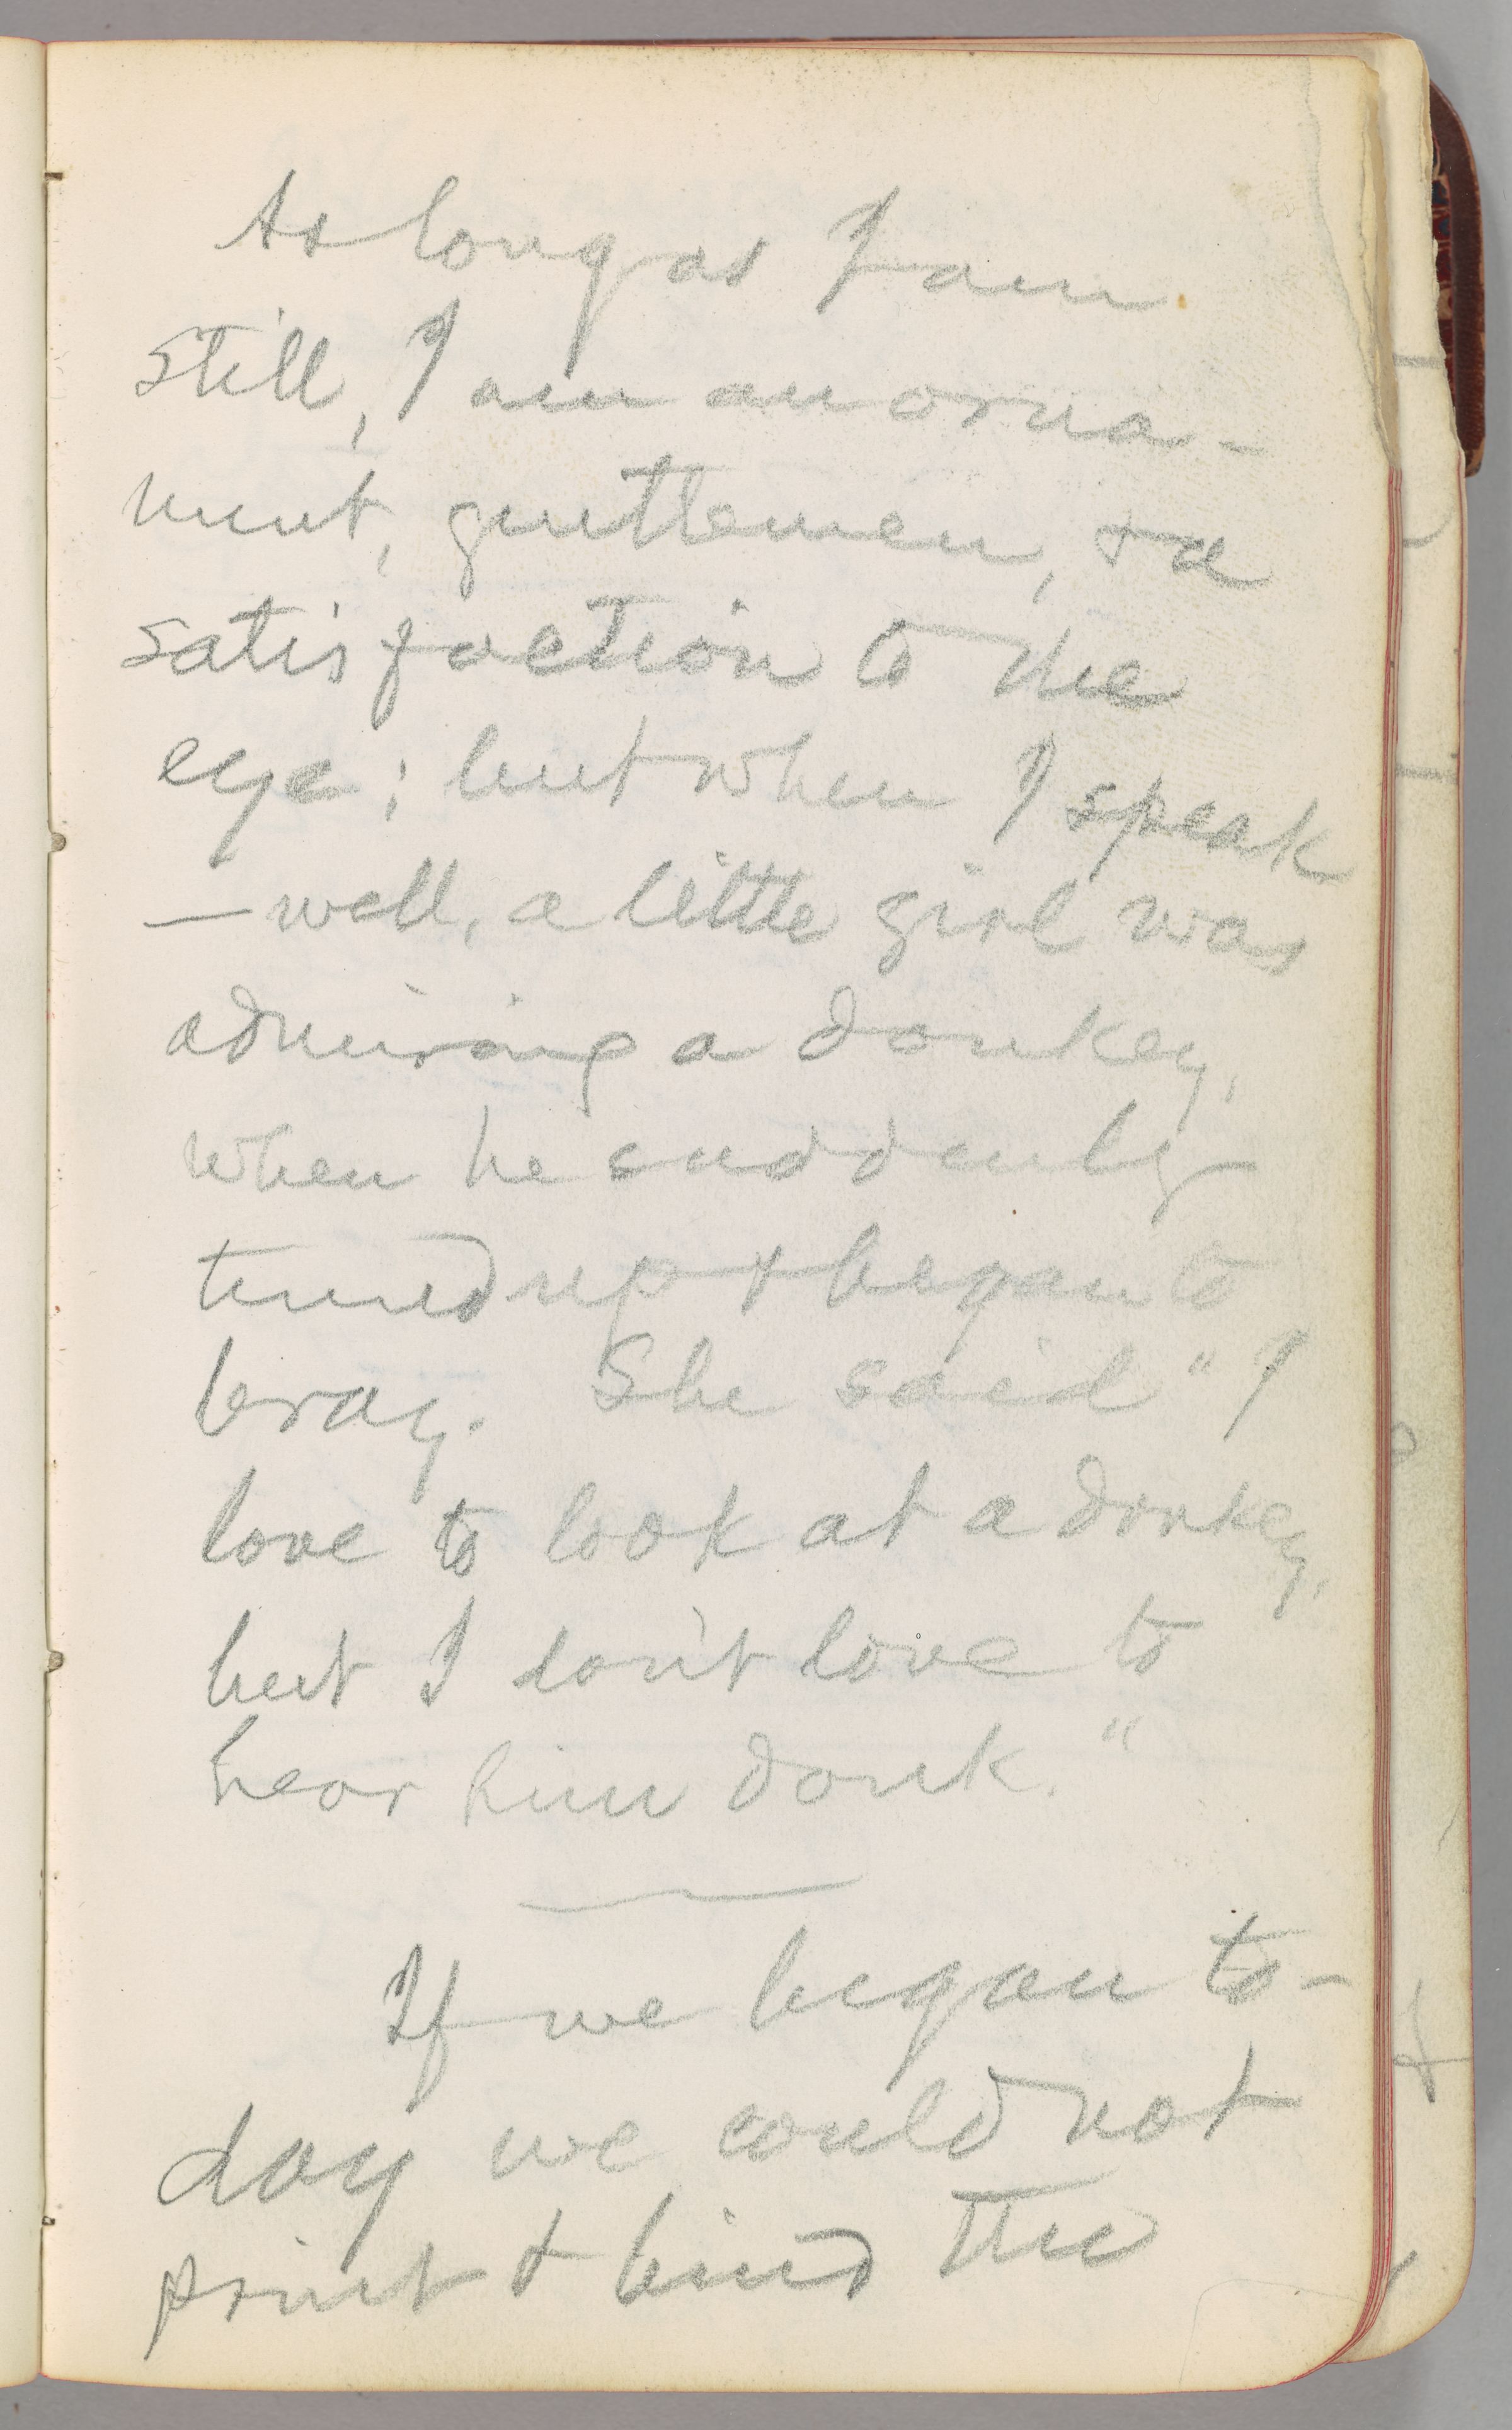 As long as I am
still, I am an orna-
ment, gentlemen, & a
satisfaction to the
eye; but when I speak
— well, a little girl was
admiring a donkey,
when he suddenly
tuned up & began to
bray. She said "I
love to look at a donkey,
but I don't love to
hear him donk."
If we began to-
day we could not
print & bind the